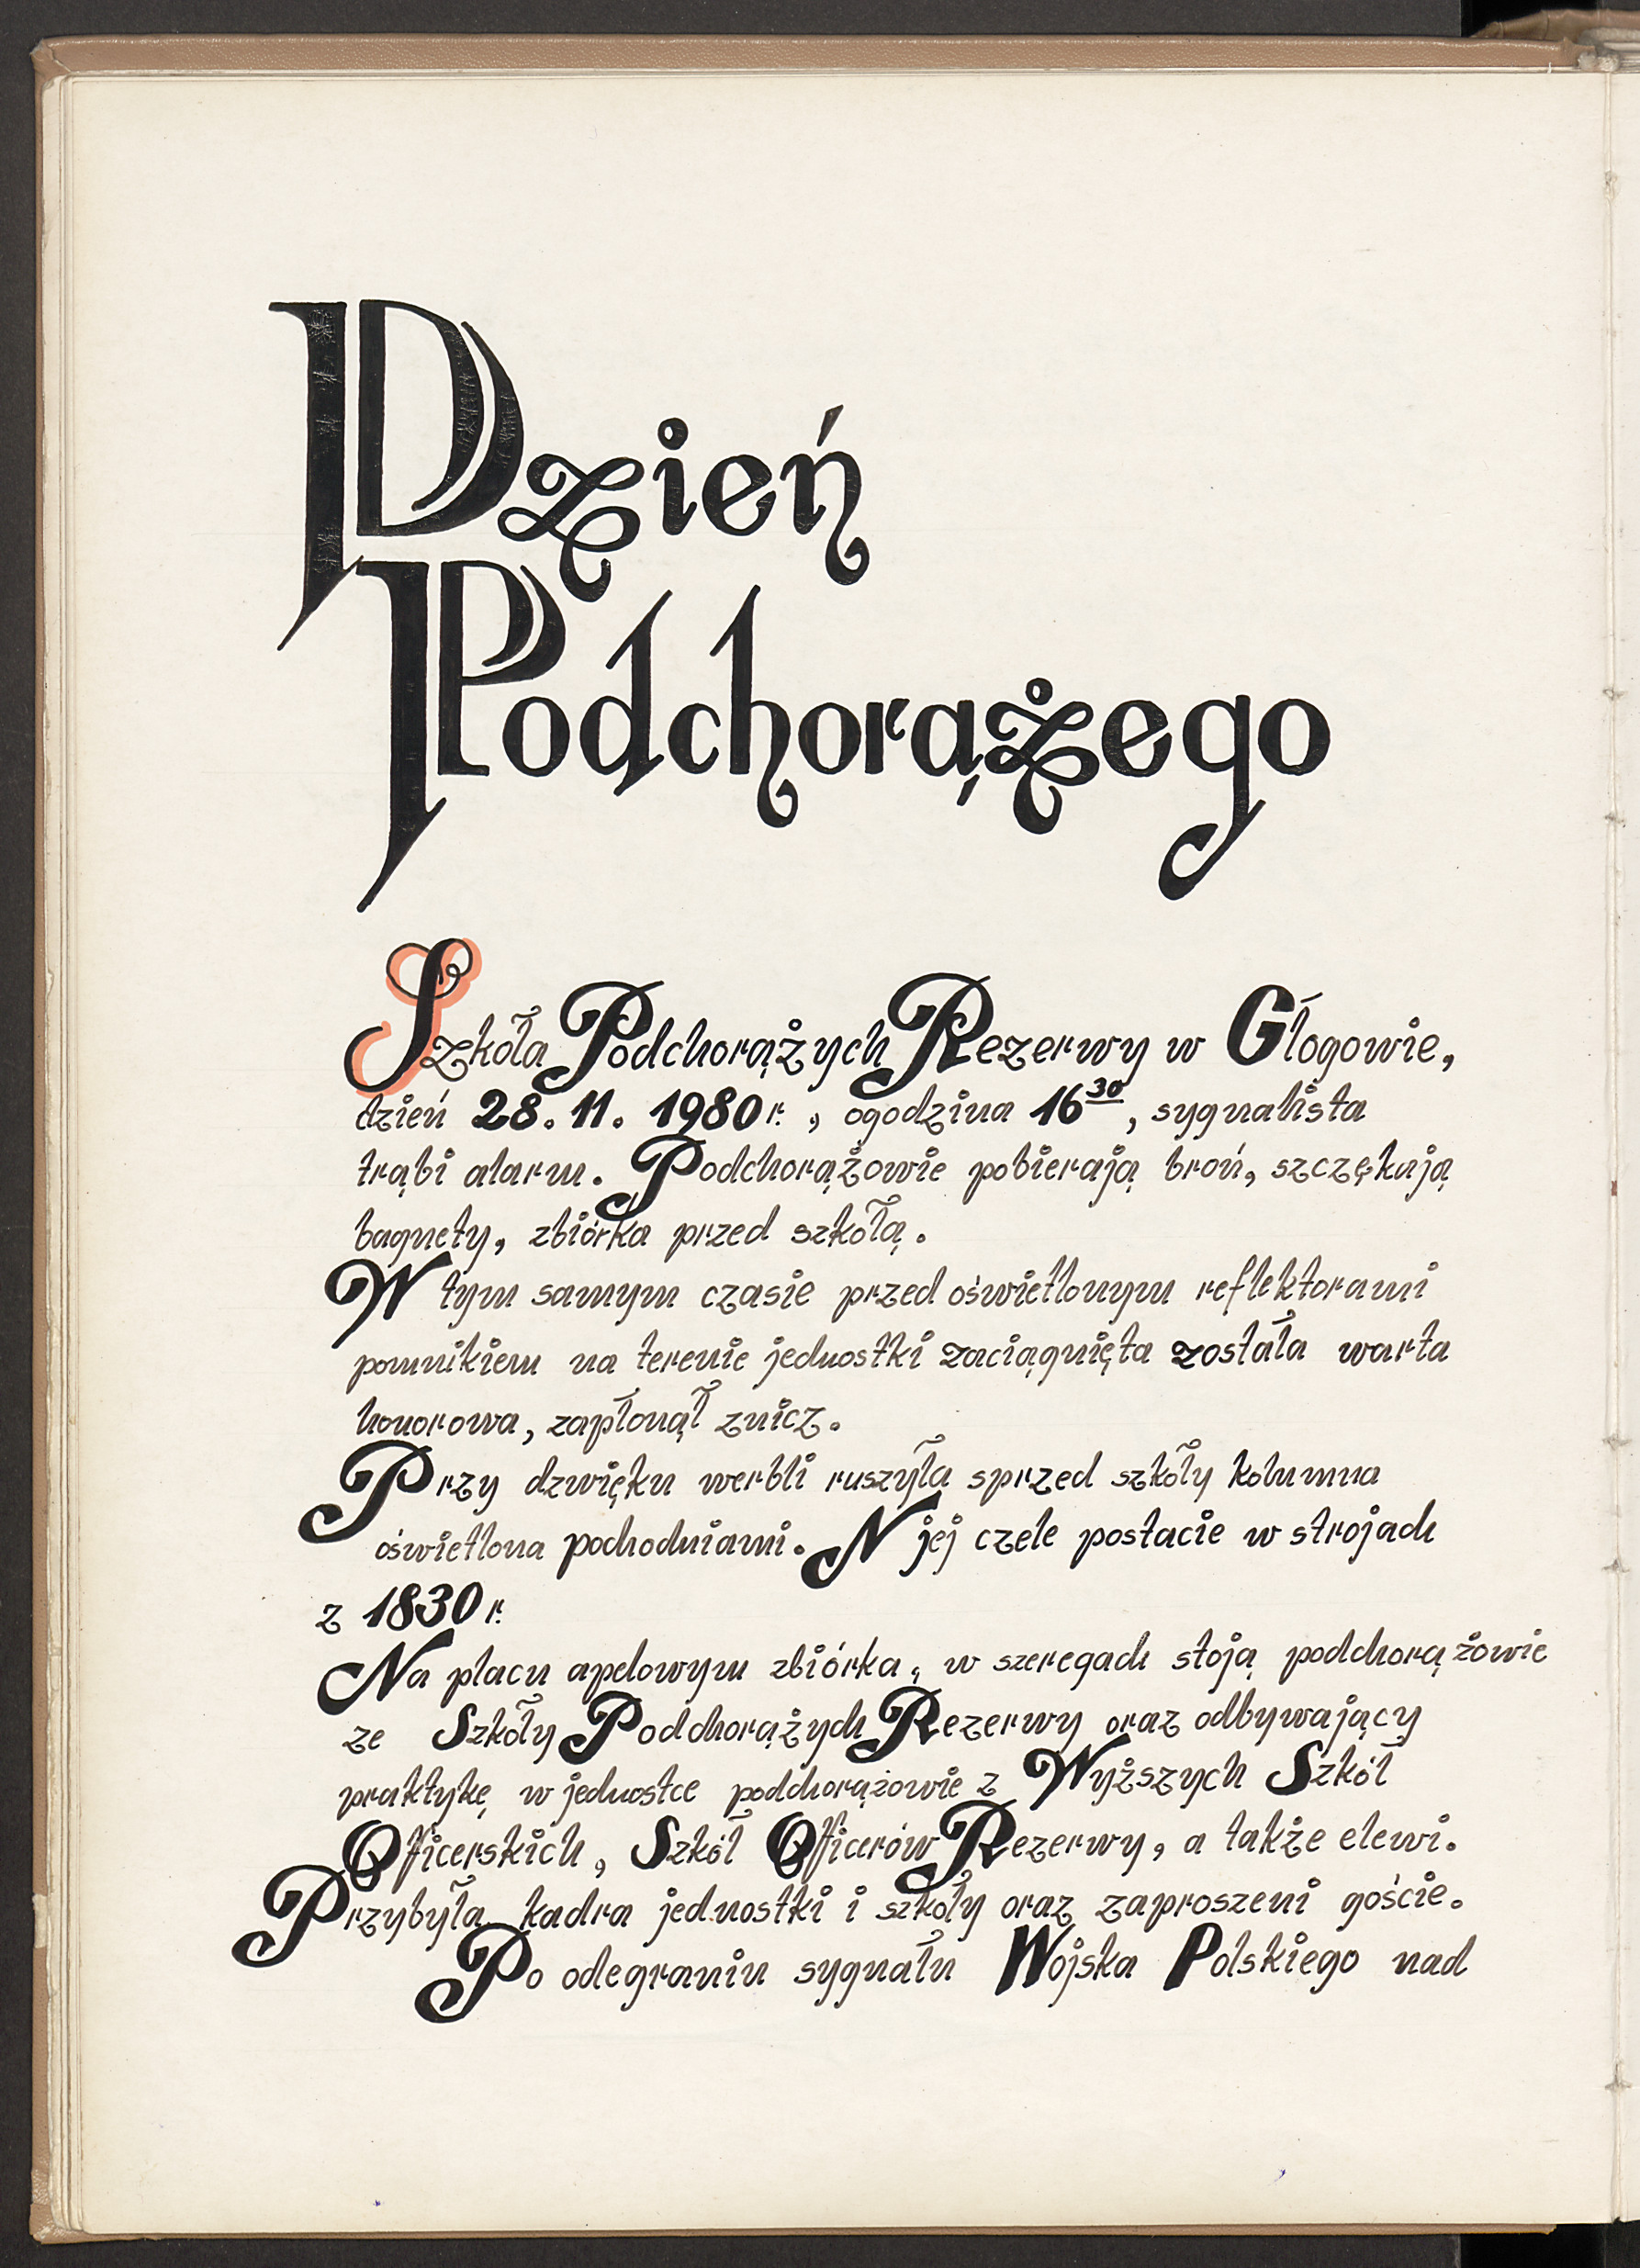 Dzień
Podchorążego
Szkoła Podchorążych Rezerwy w Głogowie,
dzień 28. 11. 1980 r. , ogodzina 16³⁰, sygnalista
trąbi alarm. Podchorążowie pobierają broń, szczękają
bagnety, zbiórka przed szkołą.
W tym samym czasie przed oświetlonym reflektorami
pomnikiem na terenie jednostki zaciągnięta została warta
honorowa, zapłonął znicz.
Przy dzwięku werbli ruszyła sprzed szkoły kolumna
oświetlona pochodniami. N jej czele postacie w strojach
z 1830 r.
Na placu apelowym zbiórka, w szeregach stoją podchorążowie
ze Szkoły Podchorążych Rezerwy oraz odbywający
praktykę w jednostce podchorążowie z Wyższych Szkół
Oficerskich, Szkół Oficerów Rezerwy, a także elewi.
Przybyła kadra jednostki i szkoły oraz zaproszeni goście.
Po odegraniu sygnału Wojska Polskiego nad